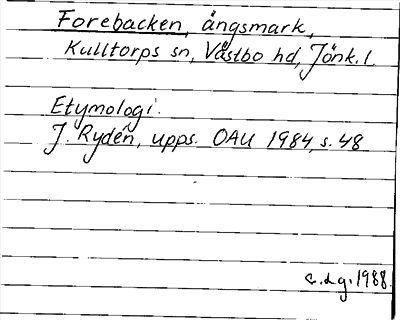 Forebacken, ängsmark,
Kulltorps sn, Västbo hd, Jönk. l.
Etymologi.
J. Rydén, upps. OAU 1984, s. 48
1988